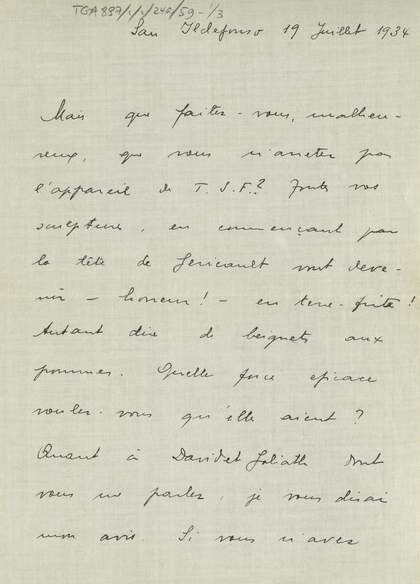 TGA 897/1/1/240/59-1/3
San Ildefonso 19 Juillet 1934
Mais que faites-vous, malheu-
reux, que vous n'arretez pas
l'appareil de T.S.F.? Toutes vos
sculptures, en commençant par
la tête de Gericault vont deve-
nir – horreur! – en terre-frite!
Autant dire de beignets aux
pommes. Quelle force eficace
voulez-vous qu'elle aient?
Quant à David et Goliath dont
vous me parlez, je vous dirai
mon avis. Si vous n'avez